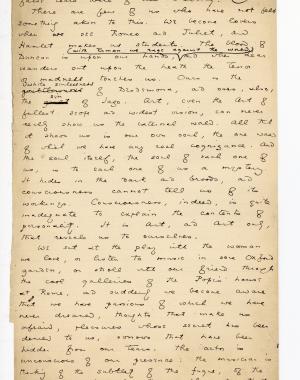 There are few of us who have not felt
something akin to this. We become lovers
when we see Romeo and Juliet, and
Hamlet makes us students. The blood of
Duncan is upon our hands,
(with Timon we rage against the world)
and when Lear
wanders out upon the heath the terror
of madness touches us. Ours is the
white sinlessness
of Desdemona, and ours, also,
the sin of Iago. Art, even the art of
fullest scope and widest vision, can never
really show us the external world. All that
it shows us is our own soul, the one world
of which we have any real cognizance. And
the soul itself, the soul of each one of
us, is to each one of us a mystery.
It hides in the dark and broods, and
consciousness cannot tell us of its
workings. Consciousness, indeed, is quite
inadequate to explain the contents of
personality. It is Art, and Art only,
that reveals us to ourselves.
We sit at the play with the woman
we love, or listen to music in some Oxford
garden, or stroll with our friend through
the cool galleries of the Pope's house
at Rome, and suddenly we become aware
that we have passions of which we have
never dreamed, thoughts that make us
afraid, pleasures whose secret has been
denied to us, sorrows that have been
hidden from our tears. The actor is
unconscious of our presence: the musician is
thinking of the subtlety of the fugue, of the